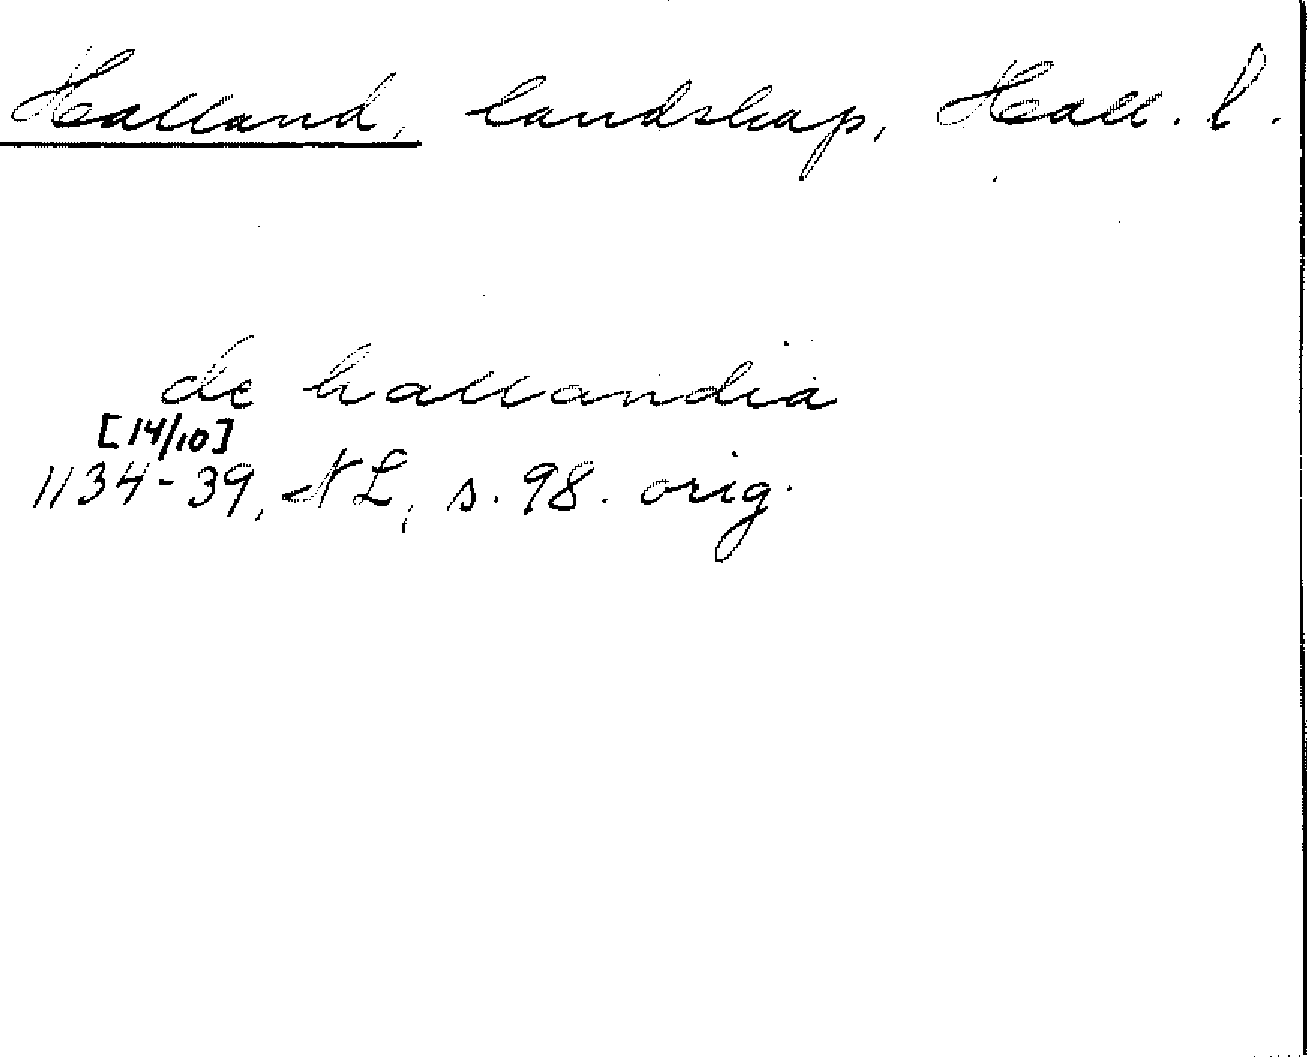 Halland, landskap, Hall. l.
de hallandia
[14/10]
1134-39, NL, s. 98. orig.